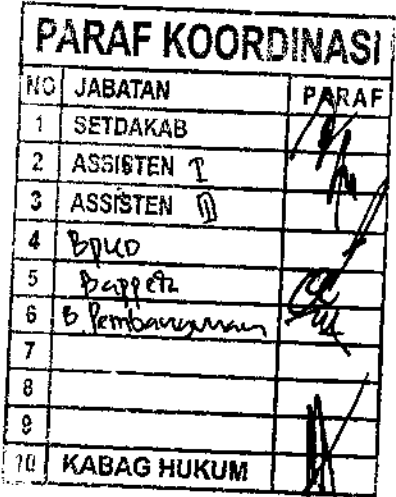 PARAF KOORDINASI
NO JABATAN PARAF
1 SETDAKAB
2 ASSISTEN I
3 ASSISTEN II
4
5
6 B. Pembangunan
7
8
9
10 KABAG HUKUM